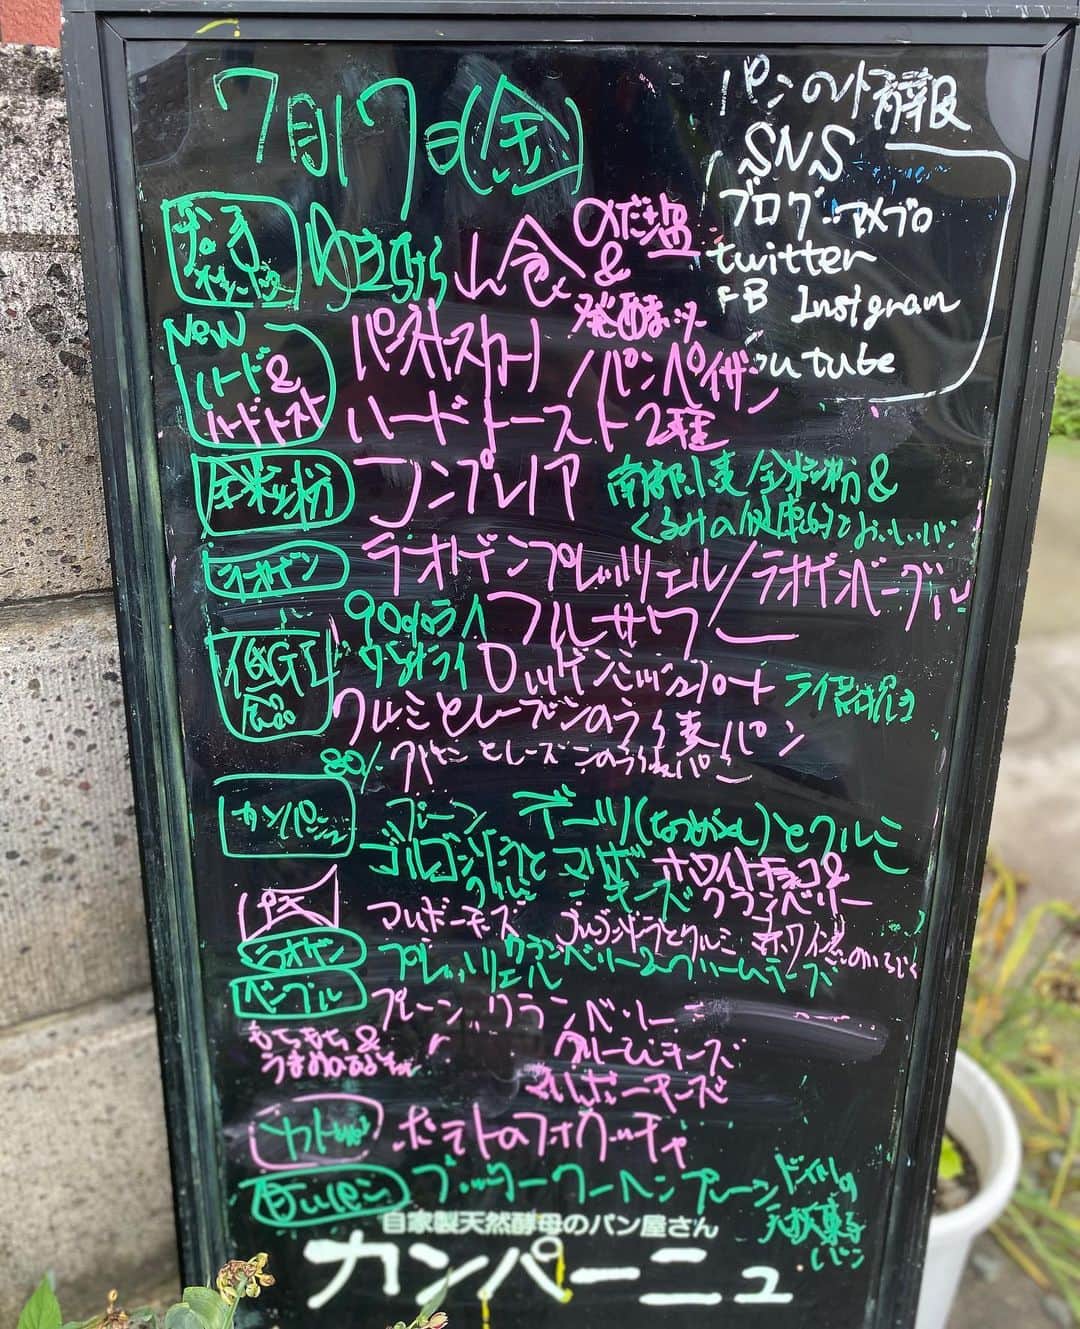 7月17日(金)
パンの情報
SNS
ブログ・アメブロ
twitter
FB Instgram
outube
ゆきちから 山食 のだ塩
&
発酵バター
NEW
ハード&
ハードトースト
パンペイザン
ハードトースト2種
全粒粉
コンプレノア
南部小麦全粒粉&
くるみの健康的でおいしいパン
ラオゲン
ラオゲンプレッツェル/ラオゲンベーグル
90%ライ
フルサワー
低GI
ロッゲンミッシュブロート
クルミとレーズンのライ麦パン
80%
カンパーニュ
プレーン
デーツ(なつめやし)とクルミ
ゴルゴンゾーラと
クルミ
マリボー
チーズ
ホワイトチョコ&
クランベリー
マリボーチーズ
ゴルゴンゾーラとクルミ
赤ワイン煮のいちじく
ラオゲン
プレッツェル
クランベリー&クリームチーズ
ベーグル
プレーン
クランベリー
クリームチーズ
マリボーチーズ
もちもち&
ポテトのフォカッチャ
甘いパン
ブッタークーヘンプレーン
ドイツの
伝統菓子
パン
自家製天然酵母のパン屋さん
カンパーニュ